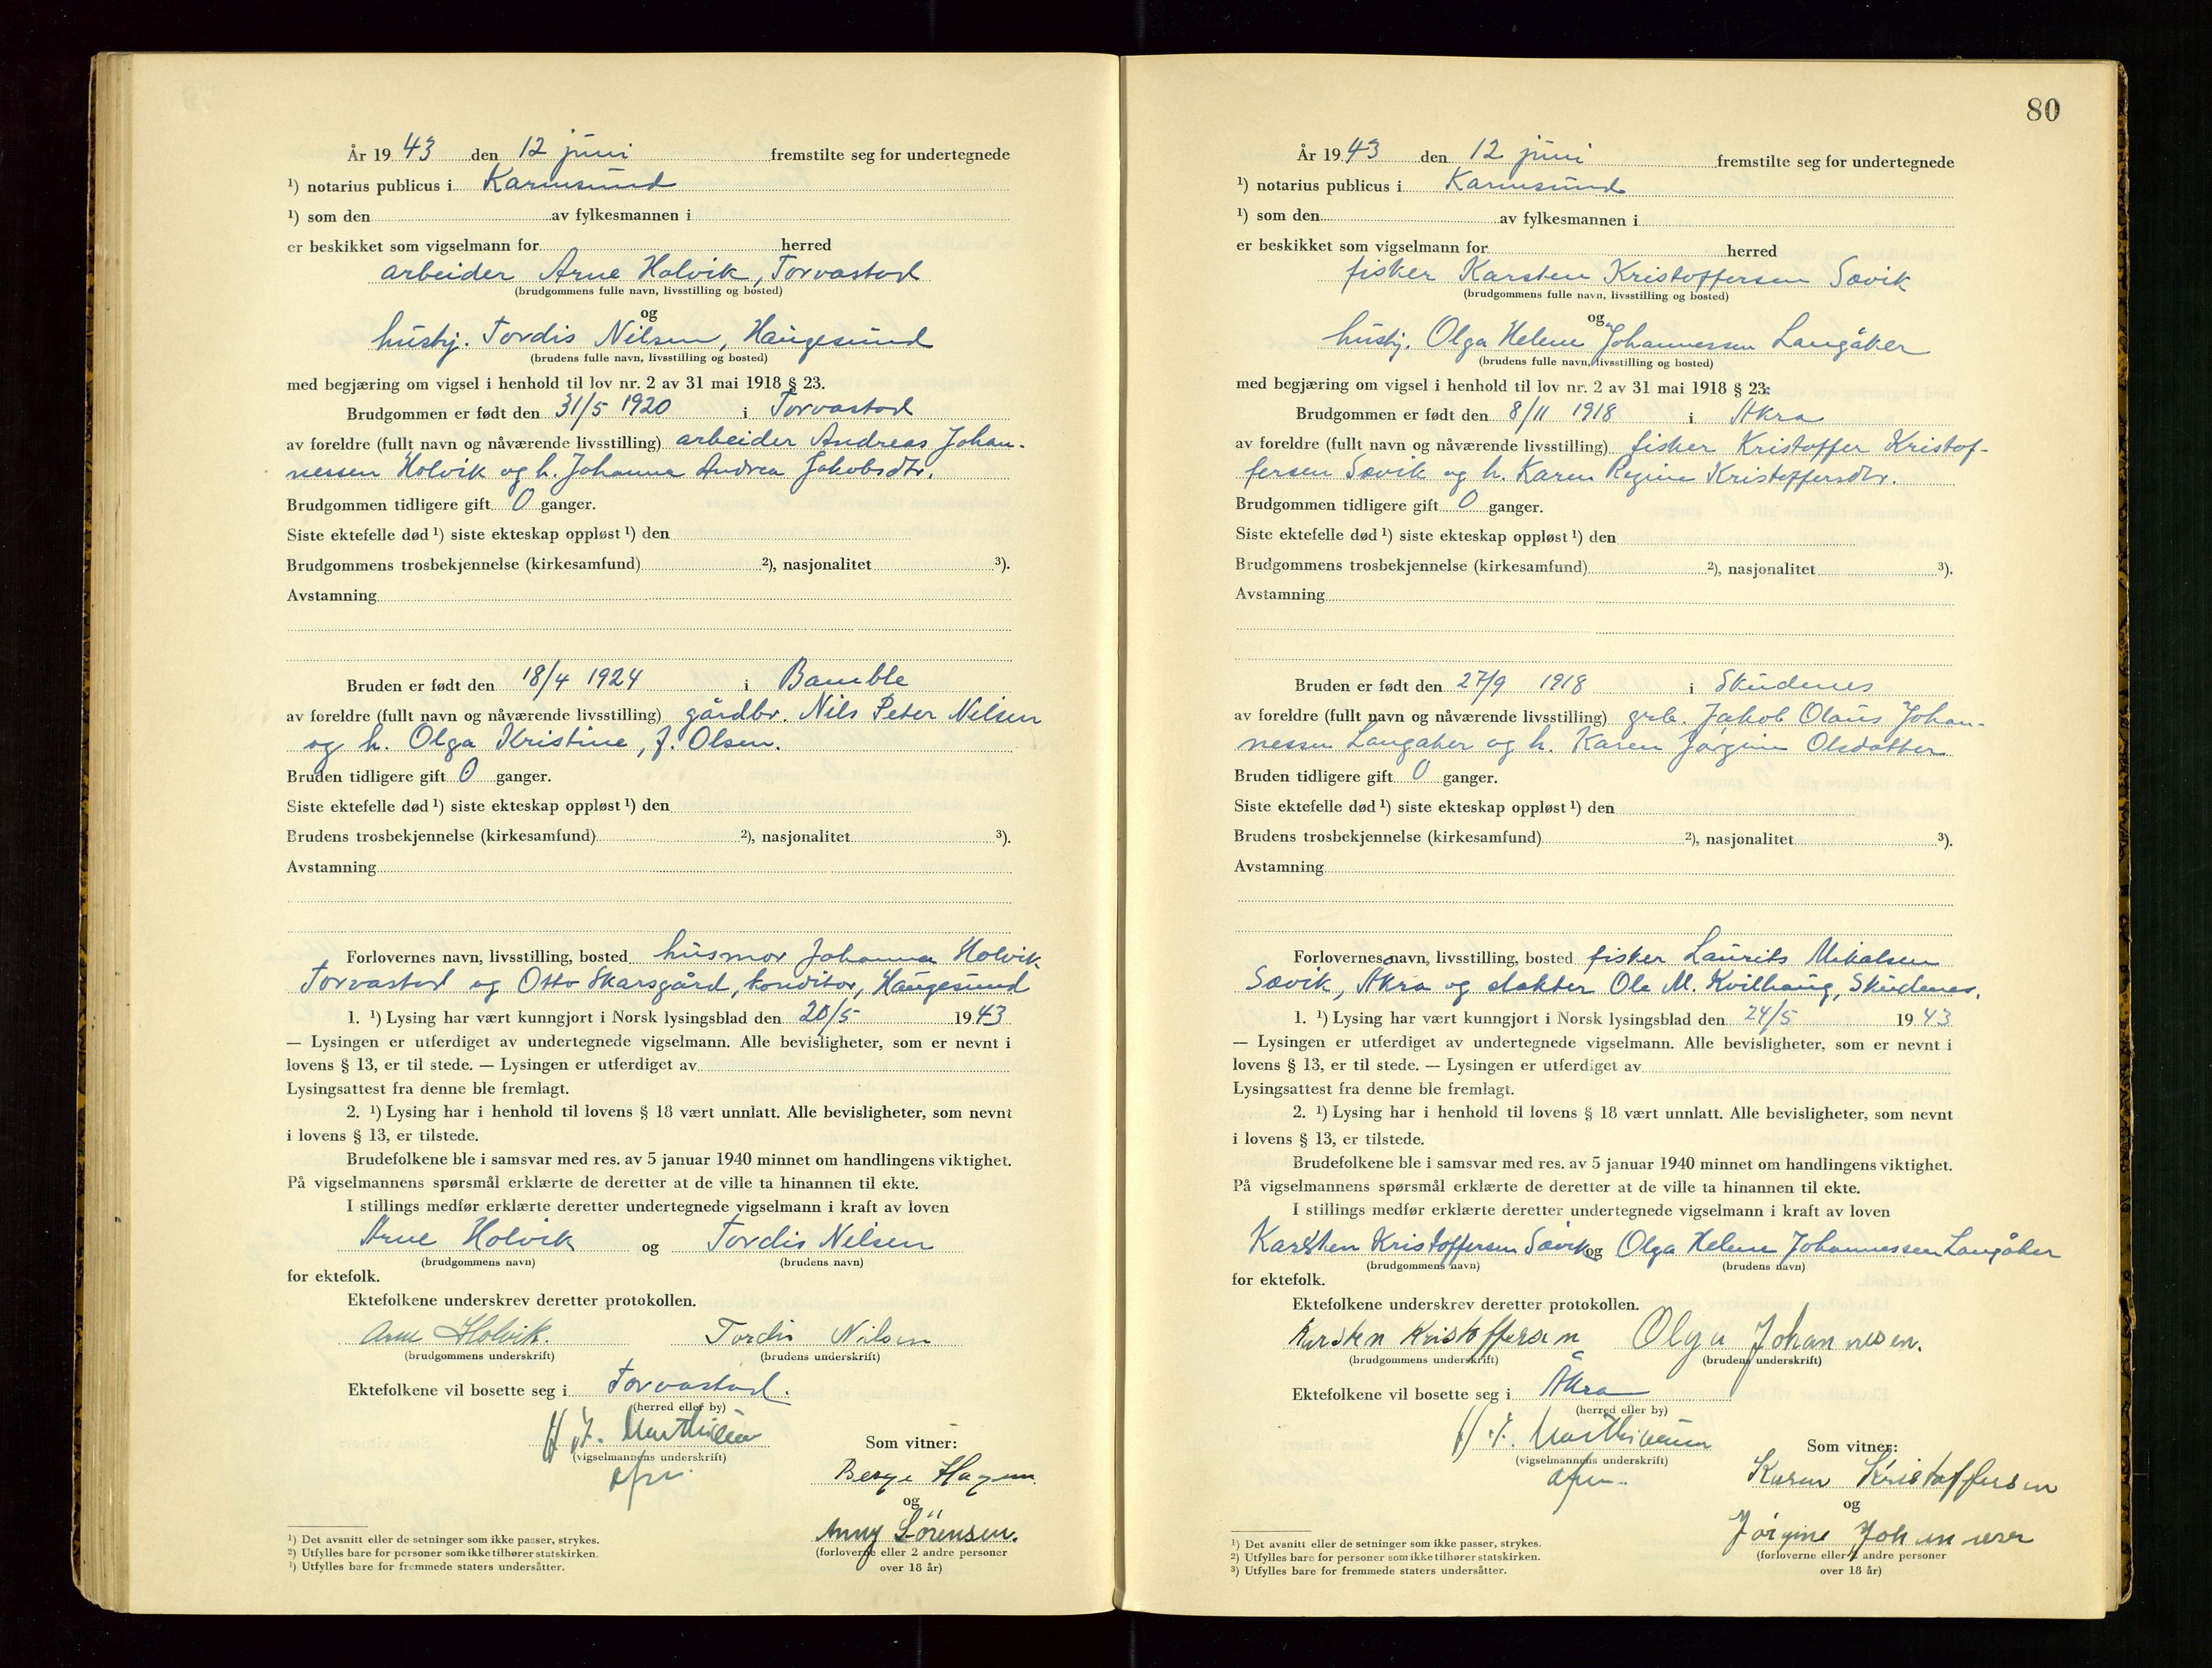 År 1943 den 12 juni fremstilte seg for undertegnede
¹) notarius publicus i Karmsund
¹) som den av fylkesmannen i
er beskikket som vigselmann for herred
arbeider Arne Holvik, Torvastad
(brudgommens fulle navn, livsstilling og bosted)
og
hushj. Tordis Nilsen, Haugesund
(brudens fulle navn, livsstilling og bosted)
med begjæring om vigsel i henhold til lov nr. 2 av 31 mai 1918 § 23.
Brudgommen er født den 31/5 1920 i Torvastad
av foreldre (fullt navn og nåværende livsstilling) arbeider Andreas Johan-
nessen Holvik og h. Johanna Andrea Jakobsdtr.
Brudgommen tidligere gift 0 ganger.
Siste ektefelle død ¹) siste ekteskap oppløst ¹) den
Brudgommens trosbekjennelse (kirkesamfund) ²), nasjonalitet ³).
Avstamning
Bruden er født den 18/4 1924 i Bamble
av foreldre (fullt navn og nåværende livsstilling) gårdbr. Nils Peter Nilsen
og h. Olga Kristine, f. Olsen.
Bruden tidligere gift 0 ganger.
Siste ektefelle død ¹) siste ekteskap oppløst ¹) den
Brudens trosbekjennelse (kirkesamfund) ²), nasjonalitet ³).
Avstamning
Forlovernes navn, livsstilling, bosted husmor Johanna Holvik
Torvastad og Otto Skarsgård, konditor, Haugesund
1. ¹) Lysing har vært kunngjort i Norsk lysingsblad den 20/5 1943
— Lysingen er utferdiget av undertegnede vigselmann. Alle bevisligheter, som er nevnt i
lovens § 13, er til stede. — Lysingen er utferdiget av
Lysingsattest fra denne ble fremlagt.
2. ¹) Lysing har i henhold til lovens § 18 vært unnlatt. Alle bevisligheter, som nevnt
i lovens § 13, er tilstede.
Brudefolkene ble i samsvar med res. av 5 januar 1940 minnet om handlingens viktighet.
På vigselmannens spørsmål erklærte de deretter at de ville ta hinannen til ekte.
I stillings medfør erklærte deretter undertegnede vigselmann i kraft av loven
Arne Holvik og Tordis Nilsen
(brudgommens navn) (brudens navn)
for ektefolk.
Ektefolkene underskrev deretter protokollen.
Arne Holvik. Tordis Nilsen
(brudgommens underskrift) (brudens underskrift)
Ektefolkene vil bosette seg i Torvastad.
(herred eller by)
(vigselmannens underskrift)
Som vitner:
og
Anny Sörensen.
(forloverne eller 2 andre personer
over 18 år)
¹) Det avsnitt eller de setninger som ikke passer, strykes.
²) Utfylles bare for personer som ikke tilhører statskirken.
¹) Utfylles bare for fremmede staters undersåtter.
80
År 1943 den 12 juni fremstilte seg for undertegnede
¹) notarius publicus i Karmsund
¹) som den av fylkesmannen i
er beskikket som vigselmann for herred
fisker Karsten Kristoffersen Sævik
(brudgommens fulle navn, livsstilling og bosted)
og
hushj. Olga Helene Johannessen Langåker
(brudens fulle navn, livsstilling og bosted)
med begjæring om vigsel i henhold til lov nr. 2 av 31 mai 1918 § 23.
Brudgommen er født den 8/11 1918 i Åkra
av foreldre (fullt navn og nåværende livsstilling) fisker Kristoffer Kristof-
fersen Sævik og h. Karen Regine Kristoffersdtr.
Brudgommen tidligere gift 0 ganger.
Siste ektefelle død ¹) siste ekteskap oppløst ¹) den
Brudgommens trosbekjennelse (kirkesamfund) ²), nasjonalitet ³).
Avstamning
Bruden er født den 27/9 1918 i Skudenes
av foreldre (fullt navn og nåværende livsstilling) grb. Jakob Olaus Johan-
nessen Langaker og h. Karen Jørgine Olsdatter
Bruden tidligere gift 0 ganger.
Siste ektefelle død ¹) siste ekteskap oppløst ¹) den
Brudens trosbekjennelse (kirkesamfund) ²), nasjonalitet ³).
Avstamning
Forlovernes navn, livsstilling, bosted fisker Laurits Mikalsen
Sævik, Åkra og slakter Ole M. Kvilhaug, Skudenes.
1. ¹) Lysing har vært kunngjort i Norsk lysingsblad den 24/5 1943
— Lysingen er utferdiget av undertegnede vigselmann. Alle bevisligheter, som er nevnt i
lovens § 13, er til stede. — Lysingen er utferdiget av
Lysingsattest fra denne ble fremlagt.
2. ¹) Lysing har i henhold til lovens § 18 vært unnlatt. Alle bevisligheter, som nevnt
i lovens § 13, er tilstede.
Brudefolkene ble i samsvar med res. av 5 januar 1940 minnet om handlingens viktighet.
På vigselmannens spørsmål erklærte de deretter at de ville ta hinannen til ekte.
I stillings medfør erklærte deretter undertegnede vigselmann i kraft av loven
Karsten Kristoffersen Sævik og Olga Helene Johannessen Langåker
(brudgommens navn) (brudens navn)
for ektefolk.
Ektefolkene underskrev deretter protokollen.
Karsten Kristoffersen Olga Johannesen.
(brudgommens underskrift) (brudens underskrift)
Ektefolkene vil bosette seg i Åkra
(herred eller by)
(vigselmannens underskrift)
Som vitner:
Karen Kristoffersen
og
Jørgine
(forloverne eller 2 andre personer
over 18 år)
¹) Det avsnitt eller de setninger som ikke passer, strykes.
²) Utfylles bare for personer som ikke tilhører statskirken.
³) Utfylles bare for fremmede staters undersåtter.